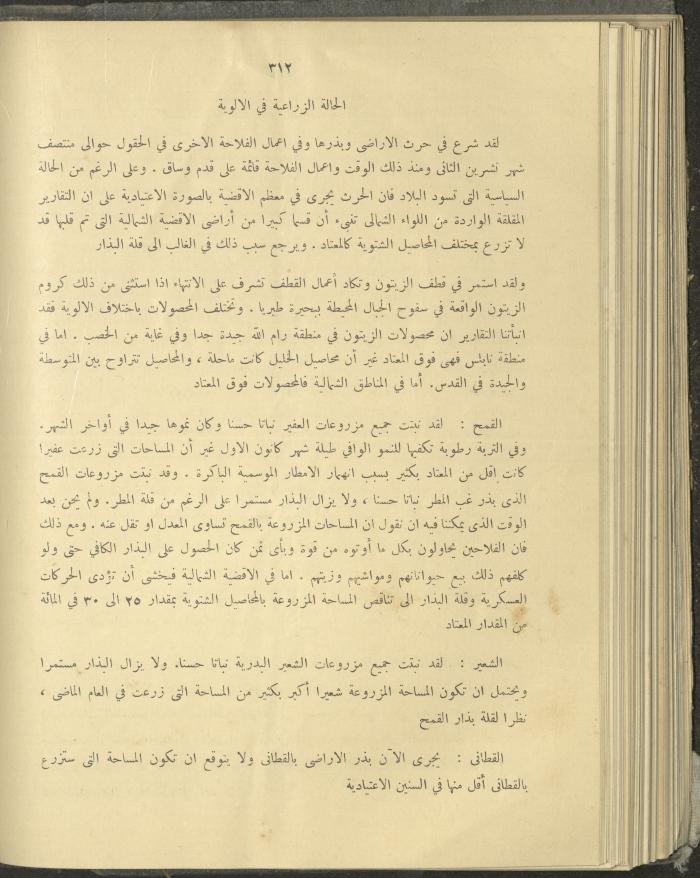 ٣١٢
الحالة الزراعية في الالوية
لقد شرع في حرث الاراضى وبذرها وفي اعمال الفلاحة الاخرى في الحقول حوالى منتصف
شهر تشرين الثانى ومنذ ذلك الوقت واعمال الفلاحة قائمة على قدم وساق . وعلى الرغم من الحالة
السياسية التى تسود البلاد فان الحرث يجرى في معظم الاقضية بالصورة الاعتيادية على ان التقارير
المقلقة الواردة من اللواء الشمالى تفىء أن قسما كبيرا من أراضى الاقضية الشمالية التى تم قلبها قد
لا تزرع بمختلف المحاصيل الشتوية كالمعتاد . ويرجع سبب ذلك في الغالب الى قلة البذار
ولقد استمر في قطف الزيتون وتكاد أعمال القطف تشرف على الانتهاء اذا استثنى من ذلك كروم
الزيتون الواقعة في سفوح الجبال المحيطة ببحيرة طبريا . وتختلف المحصولات باختلاف الالوية فقد
انبأتنا التقارير ان محصولات الزيتون في منطقة رام الله جيدة جدا وفي غاية من الخصب . اما في
منطقة نابلس فهى فوق المعتاد غير أن محاصيل الخليل كانت ماحلة ، والمحاصيل تتراوح بين المتوسطة
والجيدة في القدس. أما في المناطق الشمالية فالمحصولات فوق المعتاد
القمح : لقد نبتت جميع مزروعات العفير نباتا حسنا وكان نموها جيدا في أواخر الشهر.
وفي التربة رطوبة تكفيها للنمو الوافي طيلة شهر كانون الاول غير أن المساحات التى زرعت عفيرا
كانت اقل من المعتاد بكثير بسبب انهمار الامطار الموسمية الباكرة . وقد نبتت مزروعات القمح
الذى بذر غب المطر نباتا حسنا ، ولا يزال البذار مستمرا على الرغم من قلة المطر. ولم يحن بعد
الوقت الذى يمكننا فيه ان نقول ان المساحات المزروعة بالقمح تساوى المعدل او تقل عنه . ومع ذلك
فان الفلاحين يحاولون بكل ما أوتوه من قوة وبأى ثمن كان الحصول على البذار الكافي حتى ولو
كلفهم ذلك بيع حيواناتهم ومواشيهم وزيتهم . اما في الاقضية الشمالية فيخشى أن تؤدى الحركات
العسكرية وقلة البذار الى تناقص المساحة المزروعة بالمحاصيل الشتوية بمقدار ٢٥ الى ٣٠ في المائة
من المقدار المعتاد
الشعير : لقد نبتت جميع مزروعات الشعير البدرية نباتا حسنا. ولا يزال البذار مستمرا
ويحتمل ان تكون المساحة المزروعة شعيرا أكبر بكثير من المساحة التى زرعت في العام الماضى ،
نظرا لقلة بذار القمح
القطانى : يجرى الآن بذر الاراضى بالقطانى ولا يتوقع ان تكون المساحة التى ستزرع
بالقطانى أقل منها في السنين الاعتيادية